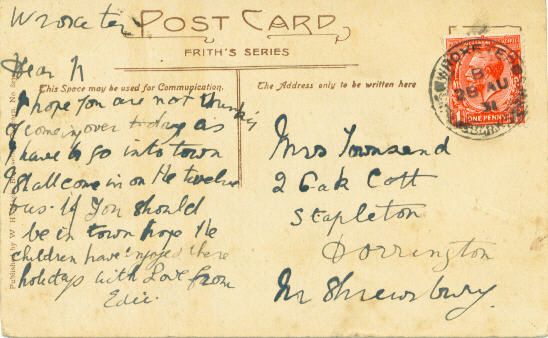 Wroxeter
POST CARD
FRITH'S SERIES
This Space may be used for Communication.
The Address only to be written here
Dear N
I hope you are not thinking
of coming over to day as
I have to go into town
I shall come in on the twelve
bus. If you should
be in town hope the
children have enjoyed there
holidays with Love from
Edie.
Mrs Townsend
2 Oak Cott
Stapleton
Dorrington
Nr Shrewsbury.
WROXETER
28 AU
31
ONE PENNY
Published by W